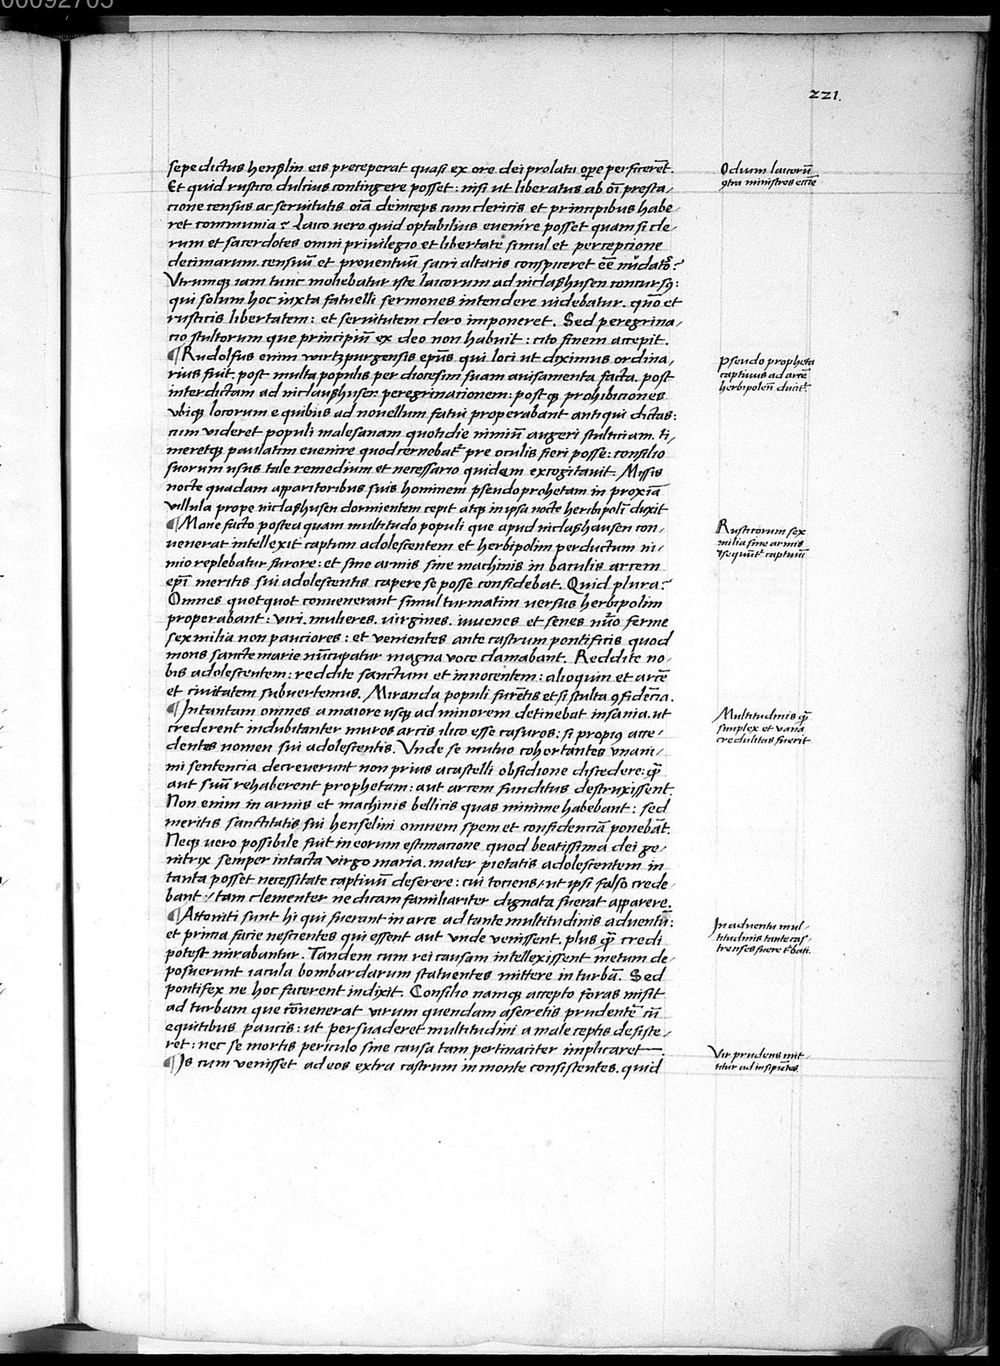 00092703
221.
sepe dictus henslin eis preceperat quasi ex ore dei prolatū ope perficerēt.
Et quid rustico dulcius contingere posset: nisi ut liberatus ab oī presta/
cione census ac servitutis oīa deinceps cum clericis et principibus habe
ret communia? Laico uero quid optabilius evenire posset quam si cle/
rum et sacerdotes omni privilegio et libertate simul et perceptione
decimarum censuū et proventuū sacri altaris conspiceret eē nudatos?
Utrumq; iam tunc moliebatur iste laicorum ad niclashusen concursq:
qui solum hoc iuxta fatuelli sermones intendere videbatur. quō et
rusticis libertatem: et servitutem clero imponeret. Sed peregrina/
cio stultorum que principiū ex deo non habuit: cito finem accepit.
¶Rudolfus enim wirtzpurgensis epūs qui loci ut diximus ordina/
rius fuit. post multa populis per diocesim suam avisamenta facta. post
interdictam ad niclaushusen peregrinacionem: postq; prohibiciones
ubiq; locorum e quibus ad novellum fatui properabant antiqui dictas:
cum videret populi malesanam quotidie nimiū augeri stulticiam. ti/
meretq; paulatim evenire quod cernebat pre oculis fieri posse: consilio
suorum usus tale remedium et necessario quidem excogitavit. Missis
nocte quadam apparitoribus suis hominem pseudoprohetam in proxīa
villula prope niclashusen dormientem cepit atq; in ipsa nocte heribpolī duxit
¶Mane facto posteaquam multitudo populi que apud niclashausen con/
venerat intellexit captum adolescentem et herbipolim perductum ni/
mio replebatur furore: et sine armis sine machinis in baculis arcem
epī meritis sui adolescentis capere se posse confidebat. Quid plura?
Omnes quotquot convenerant simul turmatim versus herbipolim
properabant: viri. mulieres. virgines. iuvenes et senes nūo ferme
sex milia non pauciores: et venientes ante castrum pontificis quod
mons sancte marie nūcupatur magna voce clamabant. Reddite no/
bis adolescentem: reddite sanctum et innocentem: alioquin et arcē
et civitatem subvertemus. Miranda populi furētis etsi stulta 9fidēcia.
¶Intantam omnes a maiore usq; ad minorem detinebat insania. ut
crederent indubitanter muros arcis ilico esse casuros: si propiq acce/
dentes nomen sui adolescentis. Unde se mutuo cohortantes unani/
mi sentencia decreverunt non prius a castelli obsidione discedere: q̄
aut suū rehaberent prophetam: aut arcem funditus destruxissent.
Non enim in armis et machinis bellicis quas minime habebant: sed
meritis sanctitatis sui henselini omnem spem et confidenciā ponebāt.
Neq; vero possibile fuit in eorum estimacione quod beatissima dei ge/
nitrix semper intacta virgo maria. mater pietatis adolescentem in
tanta posset necessitate captivū deserere: cui tociens/ut ipsi falso crede/
bant:/tam clementer ne dicam familiariter dignata fuerat apparere.
¶Attoniti sunt hi qui fuerant in arce ad tante multitudinis adventū:
et prima facie nescientes qui essent aut unde venissent. plus q̄ credi
potest mirabantur. Tandem cum rei causam intellexissent metum de/
posuerunt iacula bombardarum statuentes mittere in turbā. Sed
pontifex ne hoc facerent indixit. Consilio namq; accepto foras misit
ad turbam que cōvenerat virum quendam a secretis prudentē cū
equitibus paucis: ut persuaderet multitudini a male ceptis desiste/
ret: nec se mortis periculo sine causa tam pertinaciter implicaret
¶Is cum venisset ad eos extra castrum in monte consistentes. quid
Odium laicorū
9tra ministros eccīe
Pseudo propheta
captivus ad arcē
herbipolen̄ ducit
Rusticorum sex
milia sine armis
captivū
Multitudinis q̄
simplex et varia
credulitas fuerit
In adventu mul/
titudinis tante cas/
trenses fuere turbati.
Vir prudens mit/
titur ad insipiētes